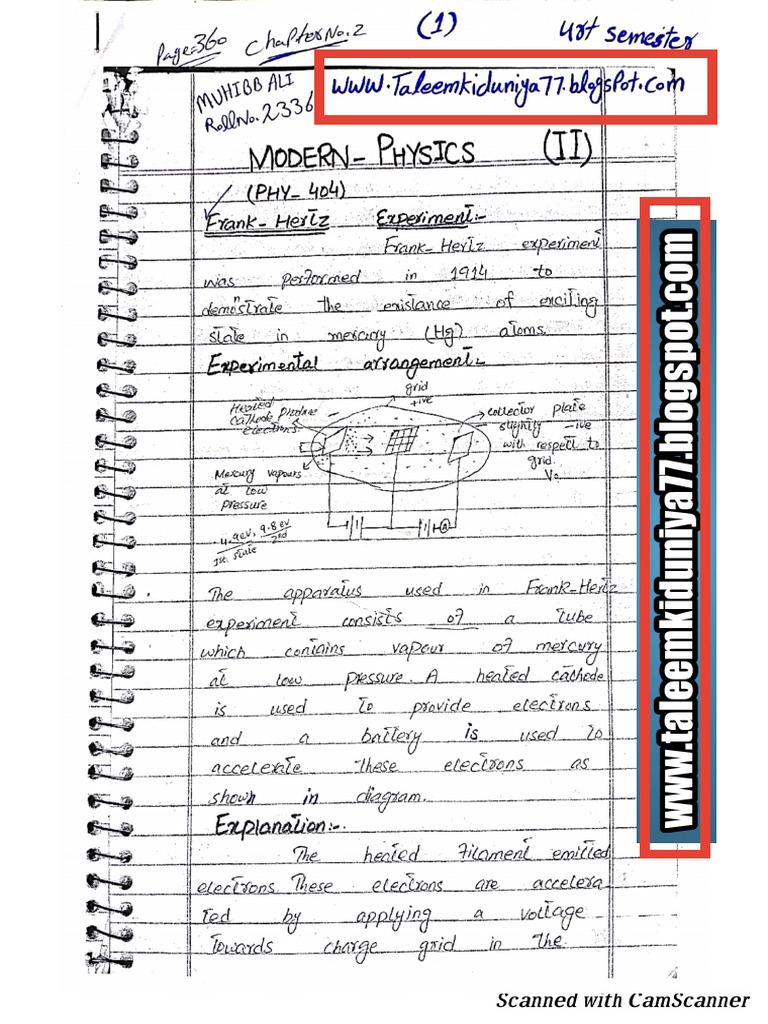 (1)
Page=360 Chapter No.2 4rt semester
MUHIBB ALI
Roll No. 2336
www.Taleemkiduniya77.blogspot.com
MODERN-PHYSICS (II)
(PHY-404)
Frank-Hertz Experiment:-
Frank-Hertz experiment
was performed in 1914 to
demonstrate the existance of exciting
state in mercury (Hg) atoms.
Experimental arrangement:-
grid
+ive
Heated
cathode produce
electrons
collector plate
slightly -ive
with respect to
grid.
V₀
Mercury vapours
at low
pressure
4.9ev, 9.8ev
1st state 2nd
A
The apparatus used in Frank-Hertz
experiment consists of a tube
which contains vapour of mercury
at low pressure. A heated cathode
is used to provide electrons
and a battery is used to
accelerate these electrons as
shown in diagram.
Explanation:-
The heated filament emitted
electrons These electrons are accelera
ted by applying a voltage
towards charge grid in the
www.taleemkiduniya77.blogspot.com
Scanned with CamScanner